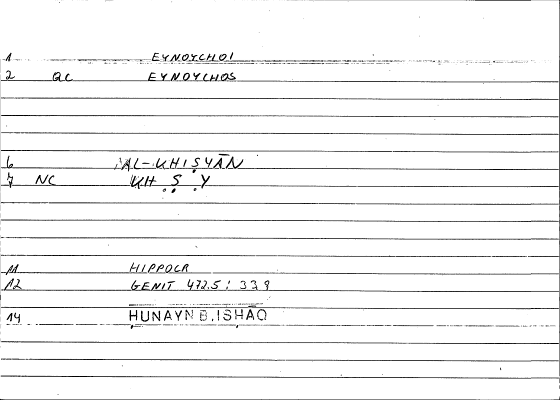 1 EYNOYCHOI
2 QC EYNOYCHOS
6 AL-KHIṢYĀN
7 NC KH Ṣ Y
11 HIPPOCR
12 GENIT 472.5 : 339
14 ḤUNAYN B. ISḤĀQ